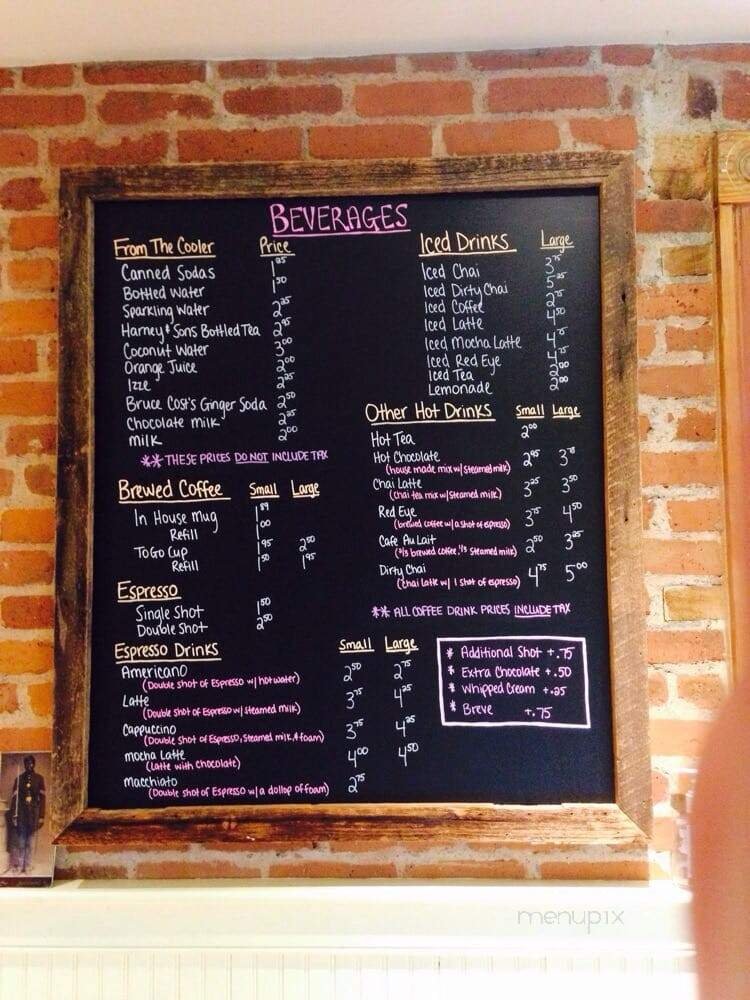 BEVERAGES
From The Cooler Price
Canned Sodas 1 25
Bottled Water 1 50
Sparkling Water 2 25
Harney & Sons Bottled Tea 2 95
Coconut Water 3 00
Orange Juice 2 00
Izze 2 25
Bruce Cost's Ginger Soda 2 50
Chocolate milk 2 25
milk 2 00
** THESE PRICES DO NOT INCLUDE TAX
Brewed Coffee Small Large
In House Mug 1 89
Refill 1 00
To Go Cup 1 95 2 50
Refill 1 50 1 95
Espresso
Single Shot 1 50
Double Shot 2 50
Espresso Drinks Small Large
Americano 2 50 2 75
(Double shot of Espresso w/ hot water)
Latte 3 75 4 25
(Double shot of Espresso w/ steamed milk)
Cappuccino 3 75 4 25
(Double shot of Espresso, steamed milk, & foam)
mocha Latte 4 00 4 50
(Latte with chocolate)
macchiato 2 75
(Double shot of Espresso w/ a dollop of foam)
Iced Drinks Large
Iced Chai 3 75
Iced Dirty Chai 5 25
Iced Coffee 2 75
Iced Latte 4 50
Iced Mocha Latte 4 75
Iced Red Eye 4 75
Iced Tea 2 00
Lemonade 2 00
Other Hot Drinks Small Large
Hot Tea 2 00
Hot Chocolate 2 95 3 75
(house made mix w/ steamed milk)
Chai Latte 3 25 3 50
(chai tea mix w/ steamed milk)
Red Eye 3 75 4 50
(brewed coffee w/ a shot of espresso)
Cafe Au Lait 2 50 3 25
(2/3 brewed coffee, 1/3 steamed milk)
Dirty Chai 4 75 5 00
(Chai Latte w/ 1 shot of espresso)
** ALL COFFEE DRINK PRICES INCLUDE TAX
* Additional Shot +.75
* Extra Chocolate +.50
* Whipped Cream +.25
* Breve +.75
menupix